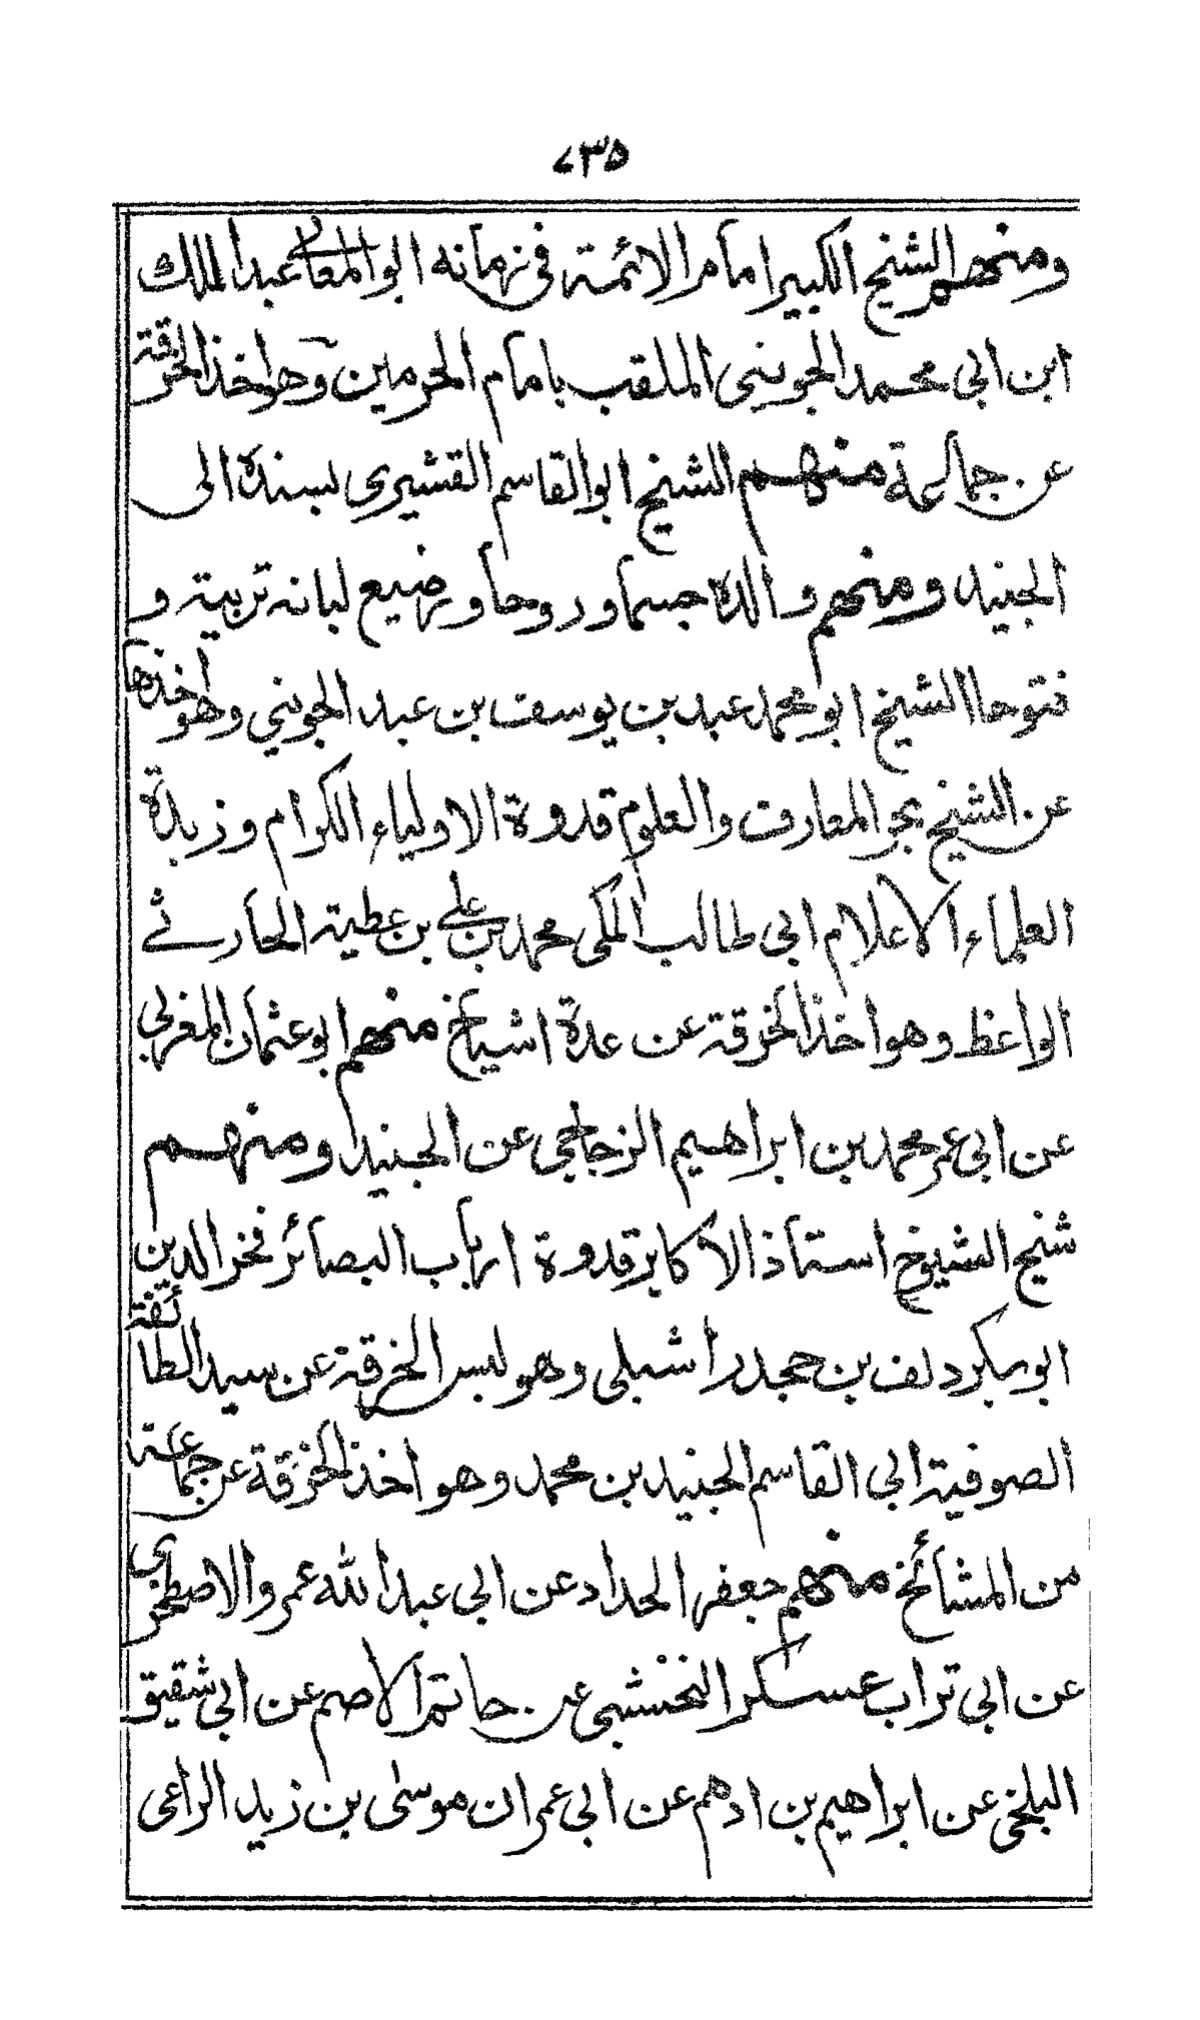 ٧٣٥
ومنهم الشيخ الكبير امام الائمة فى زمانه ابو المعالى عبد الملك
ابن ابى محمد الجوينى الملقب بامام الحرمين وهو اخذ الخرقة
عن جماعة منهم الشيخ ابو القاسم القشيرى بسنده الى
الجنيد ومنهم والده جسما وروحا ورضيع لبانه تربية و
فتوحا الشيخ ابو محمد عبد بن يوسف بن عبد الجوينى وهو اخذها
عن الشيخ بحر المعارف والعلوم قدوة الاولياء الكرام وزبدة
العلماء الاعلام ابى طالب المكى محمد بن على بن عطية الحارثے
الواعظ وهو اخذ الخرقة عن عدة اشياخ منهم ابو عثمان المغربى
عن ابى عمر محمد بن ابراهيم الزجاجى عن الجنيد ومنهم
شيخ الشيوخ استاذ الاكابر قدوة ارباب البصائر فخر الدين
ابو بكر دلف بن جحدر اشبلى وهو لبس الخرقة عن سيد الطائفة
الصوفية ابى القاسم الجنيد بن محمد وهو اخذ الخرقة عن جماعة
من المشائخ منهم جعفر الحداد عن ابى عبد الله عمرو الاصطخرى
عن ابى تراب عسكر النخشبى عن حاتم الاصم عن ابى شقيق
البلخى عن ابراهيم بن ادهم عن ابى عمران موسى بن زيد الراعى